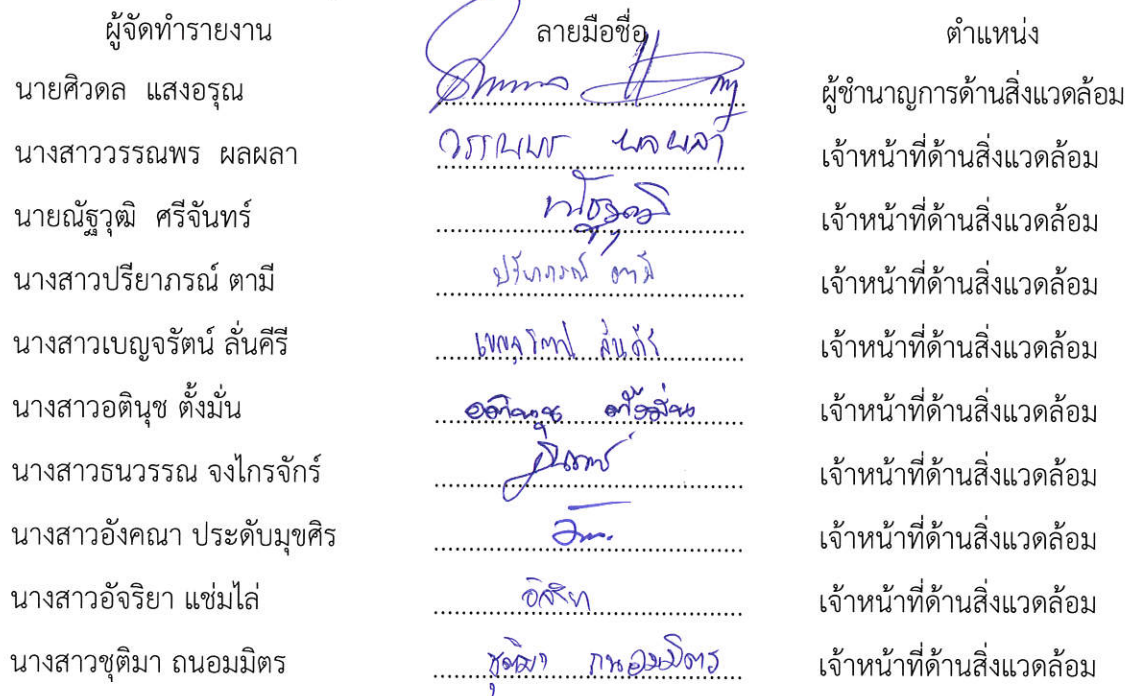 ผู้จัดทำรายงาน ลายมือชื่อ ตำแหน่ง
นายศิวดล แสงอรุณ ผู้ชำนาญการด้านสิ่งแวดล้อม
นางสาววรรณพร ผลผลา วรรณพร ผลผลา เจ้าหน้าที่ด้านสิ่งแวดล้อม
นายณัฐวุฒิ ศรีจันทร์ ณัฐวุฒิ เจ้าหน้าที่ด้านสิ่งแวดล้อม
นางสาวปรียาภรณ์ ตามี ปรียาภรณ์ ตามี เจ้าหน้าที่ด้านสิ่งแวดล้อม
นางสาวเบญจรัตน์ ลั่นคีรี เบญจรัตน์ ลั่นคีรี เจ้าหน้าที่ด้านสิ่งแวดล้อม
นางสาวอตินุช ตั้งมั่น อตินุช ตั้งมั่น เจ้าหน้าที่ด้านสิ่งแวดล้อม
นางสาวธนวรรณ จงไกรจักร์ เจ้าหน้าที่ด้านสิ่งแวดล้อม
นางสาวอังคณา ประดับมุขศิร เจ้าหน้าที่ด้านสิ่งแวดล้อม
นางสาวอัจริยา แช่มไล่ อัจริยา เจ้าหน้าที่ด้านสิ่งแวดล้อม
นางสาวชุติมา ถนอมมิตร ชุติมา ถนอมมิตร เจ้าหน้าที่ด้านสิ่งแวดล้อม